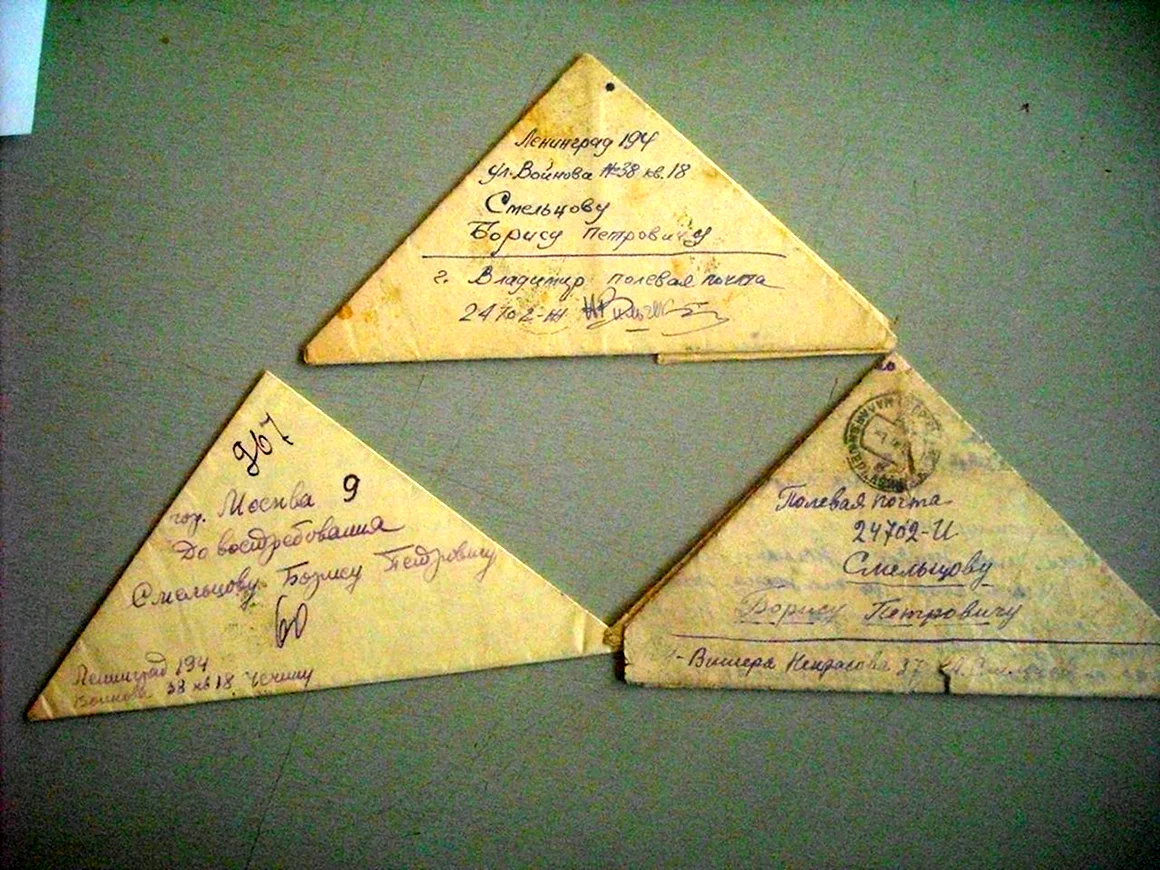 Ленинград 194
ул. Войнова №38 кв. 18
Смельцову
Борису Петровичу
г. Владимир полевая почта
24702-Ж
967
гор. Москва 9
До востребования
Смельцову Борису Петровичу
60
Ленинград 194
Войнова 38 кв 18
Полевая почта
24702-И
Смельцову
Борису Петровичу
Вишера Некрасова 37